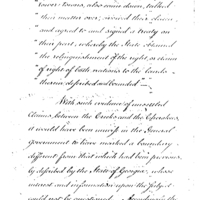 lower towns, also came down, talked
their matters over, revised their claims,
and agreed to and signed a treaty on
their part, whereby the State obtained
the relinquishment of the right, or claim
of right of both nations to the lands
therein described and bounded —
With such evidence of unsettled
Claims, between the Creeks and the Cherokees,
it would have been unwise in the General
government to have marked a boundary
different from that which had been previous-
ly described by the State of Georgia, whose
interest and information upon the subject
could not be questioned.